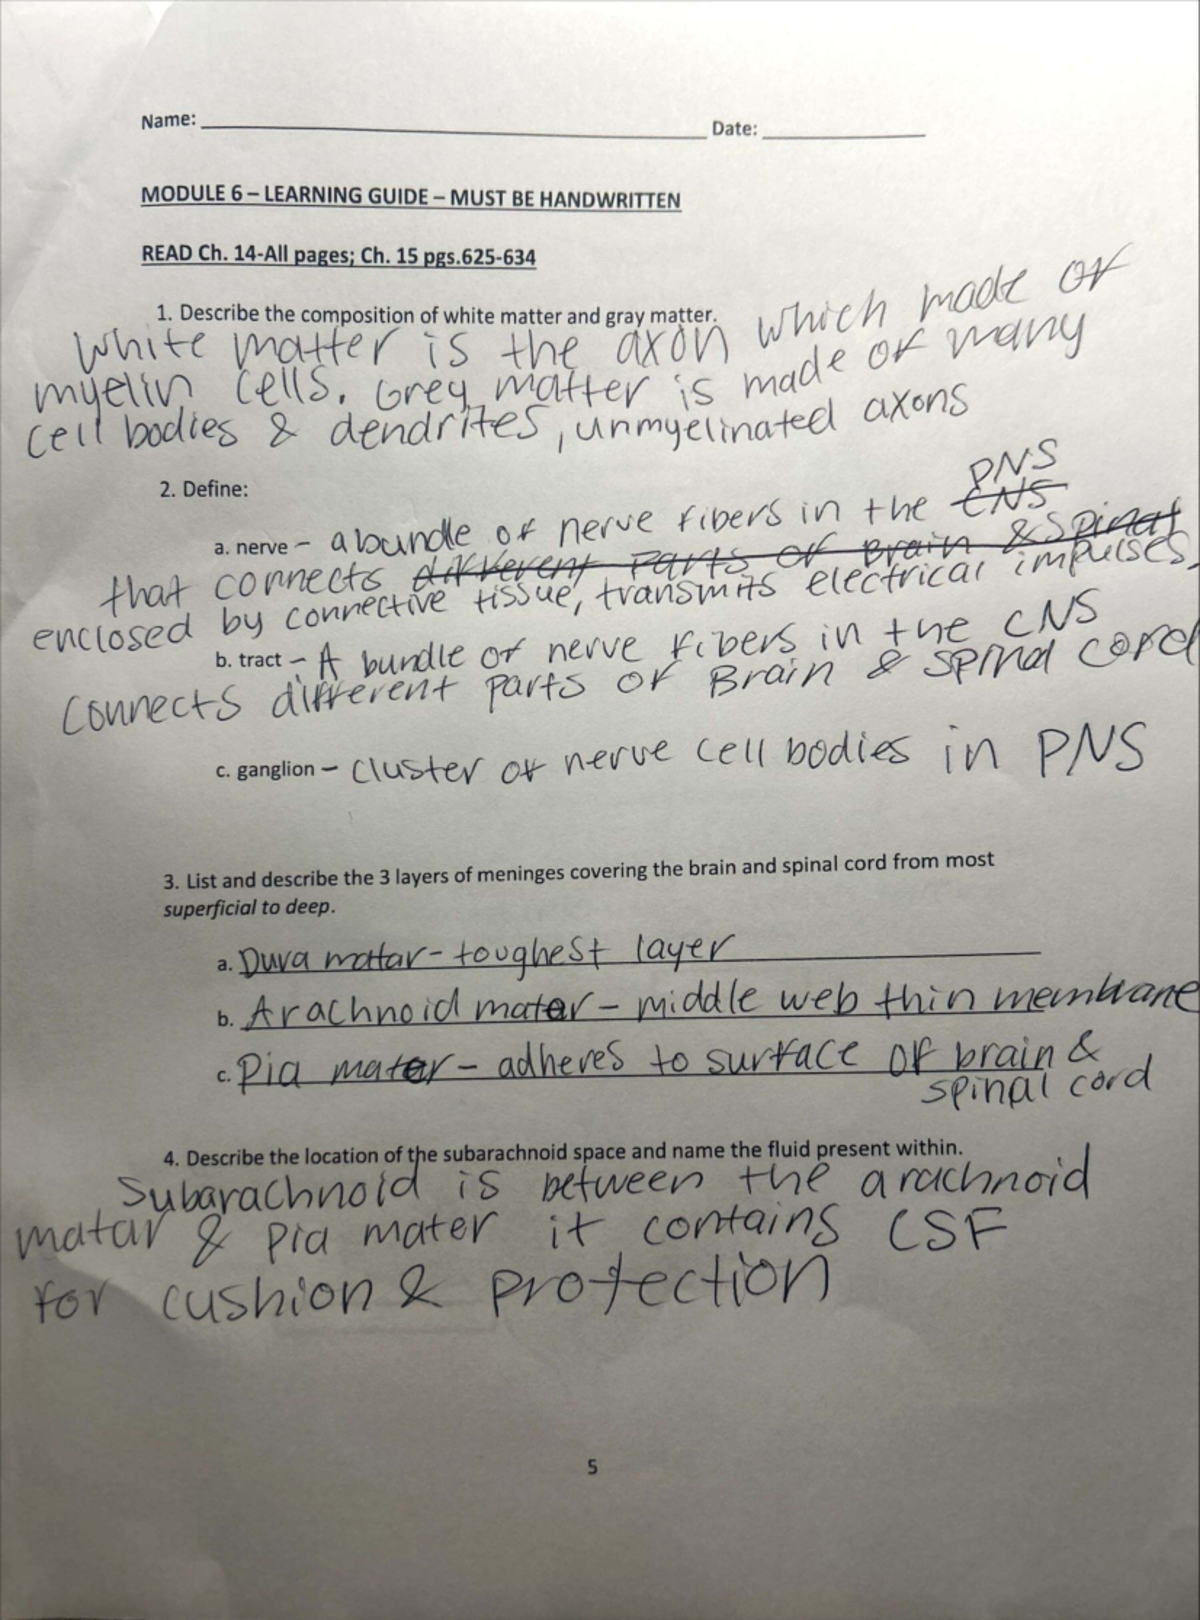 Name: ____ Date: ____
MODULE 6 – LEARNING GUIDE – MUST BE HANDWRITTEN
READ Ch. 14-All pages; Ch. 15 pgs.625-634
1. Describe the composition of white matter and gray matter.
White matter is the axon which made of
myelin cells. Grey matter is made of many
cell bodies & dendrites, unmyelinated axons
2. Define:
PNS
a. nerve – a bundle of nerve fibers in the CNS
that connects different parts of Brain & Spinal
enclosed by connective tissue, transmits electrical impulses.
b. tract – A bundle of nerve fibers in the CNS
connects different parts of Brain & spinal cord
c. ganglion – cluster of nerve cell bodies in PNS
3. List and describe the 3 layers of meninges covering the brain and spinal cord from most
superficial to deep.
a. Dura matar – toughest layer
b. Arachnoid mater – middle web thin membrane
c. Pia mater – adheres to surface of brain &
spinal cord
4. Describe the location of the subarachnoid space and name the fluid present within.
Subarachnoid is between the arachnoid
matar & Pia mater it contains CSF
for cushion & protection
5